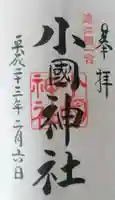 奉拝
遠江國一宮
小國神社
平成二十三年二月六日